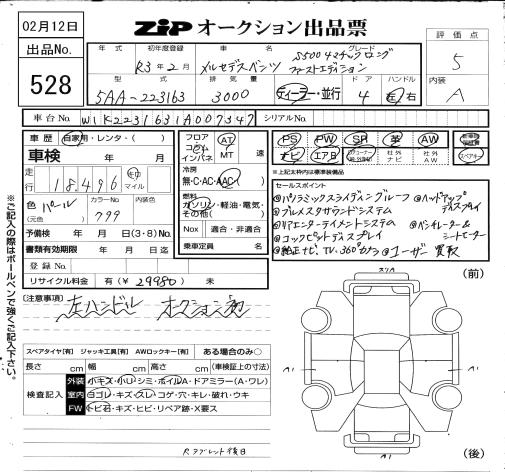 02月12日
ZiP オークション出品票
出品No.
528
評価点
5
内装
A
年式 初年度登録 車名 グレード
R3年2月 メルセデスベンツ S500 4マチックロング
ファーストエディション
型式 排気量 ドア ハンドル
5AA-223163 3000 ディーラー・並行 4 左 右
車台No. W1K2231631A007347 シリアルNo.
車歴 自家用・レンタ・( )
車検 年 月
走行 18,496 km マイル
色 パール カラーNo 799 内装色
(元色)
予備検 年 月 日(3・8)No.
書類有効期限 年 月 日迄
登録No.
リサイクル料金 有(¥ 29980) 未
フロア コラム インパネ AT MT 速
冷房
無・C・AC・AAC( )
燃料
ガソリン・軽油・電気・その他( )
Nox 適合・非適合
乗車定員 名
PS PW SR 革 AW
ナビ エアB 社外ナビ 社外AW スペアキー
※上記太枠内は標準装備品
セールスポイント
@パノラミックスライディングルーフ @ヘッドアップディスプレイ
@ブルメスタサウンドシステム
@リアエンターテイメントシステム @ベンチレーター&シートヒーター
@コックピットディスプレイ
@純正ナビ.TV.360°カメラ @ユーザー買取
(注意事項) 左ハンドル
スペアタイヤ[有] ジャッキ工具[有] AWロックキー[有] ある場合のみ〇
長さ cm 幅 cm 高さ cm (車検証上の寸法)
検査記入
外装 小キズ・小凹・シミ・ボイルA・ドアミラー(A・ワレ)
室内 ヨゴレ・キズ・スレ・コゲ・穴・キレ・破れ・ウキ
FW トビ石・キズ・ヒビ・リペア跡・X要ス
※ご記入の際はボールペンで強くご記入下さい。
(前)
(後)